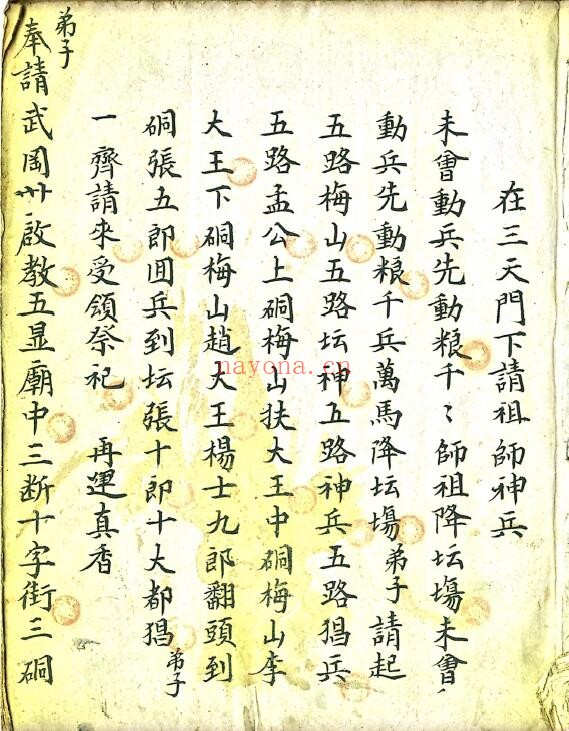 在三天門下請祖師神兵
未曾動兵先動粮千〻師祖降坛場未曾
動兵先動粮千兵萬馬降坛場弟子請起
五路梅山五路坛神五路神兵五路猖兵
五路孟公上硐梅山扶大王中硐梅山李
大王下硐梅山趙大王楊士九郎翻頭到
硐張五郎囬兵到坛張十郎十大都猖弟子
一齊請來受領祭祀 再運真香
弟子
奉請武岡卅啟教五显廟中三断十字街三硐
nayona.cn